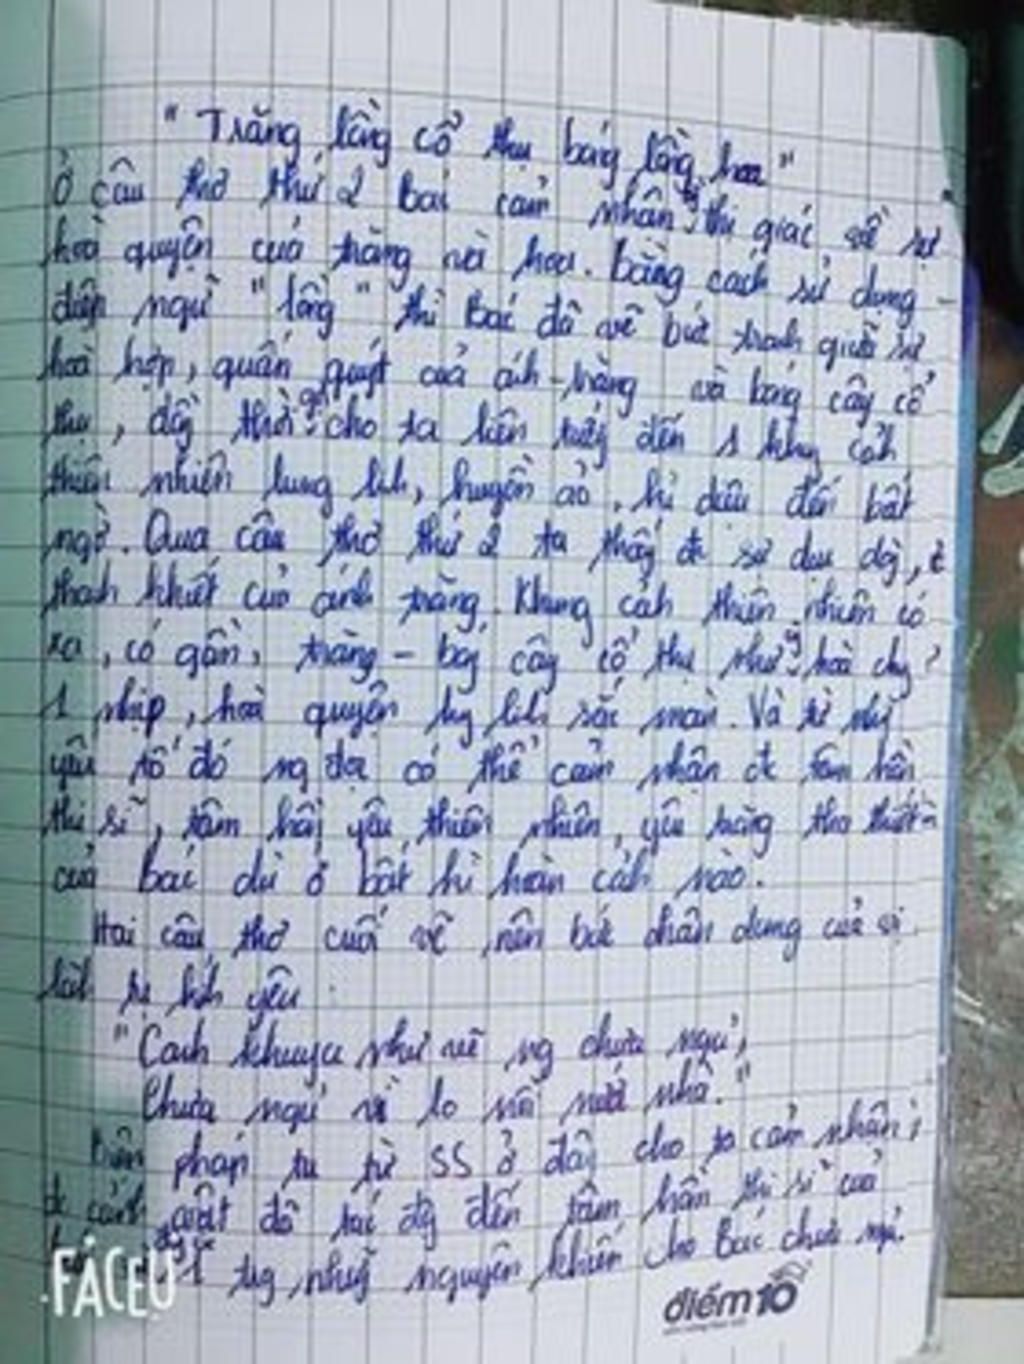 "Trăng lồng cổ thụ bóng lồng hoa"
Ở câu thơ thứ 2 Bác cảm nhân = thi giác về sự
hoà quyện của trăng và hoa. Bằng cách sử dụng
điệp ngữ "lồng" thì Bác đã vẽ bức tranh giữa sự
hoà hợp, quấn quýt của ánh trăng và bóng cây cổ
thụ, đồg thời gợi cho ta liên tưởg đến 1 khug cảh
thiên nhiên lung lih, huyền ảo, kì diệu đến bất
ngờ. Qua câu thơ thứ 2 ta thấy đc sự dịu dàg,
thanh khiết của ánh trăng. Khung cảnh thiên nhiên có
xa, có gần, trăng - bóg cây cổ thụ như hoà chug
1 nhịp, hoà quyện lug lih sắc màu. Và từ nhữg
yếu tố đó ng đọc có thể cảm nhận đc tâm hồn
thi sĩ, tâm hồn yêu thiên nhiên, yêu trăng tha thiết
của bác dù ở bất kì hoàn cảh nào.
Hai câu thơ cuối vẽ nên bức chân dung của vị
lãh tụ kíh yêu:
"Cảnh khuya như vẽ ng chưa ngủ,
Chưa ngủ vì lo nỗi nước nhà."
Biện pháp tu từ SS ở đây cho ta cảm nhân
đc cảnh vật đã tác độg đến tâm hồn thi sĩ của
1 tr̀g nhữg nguyên nhân khiến cho Bác chưa ngủ.
FACEU
điểm10